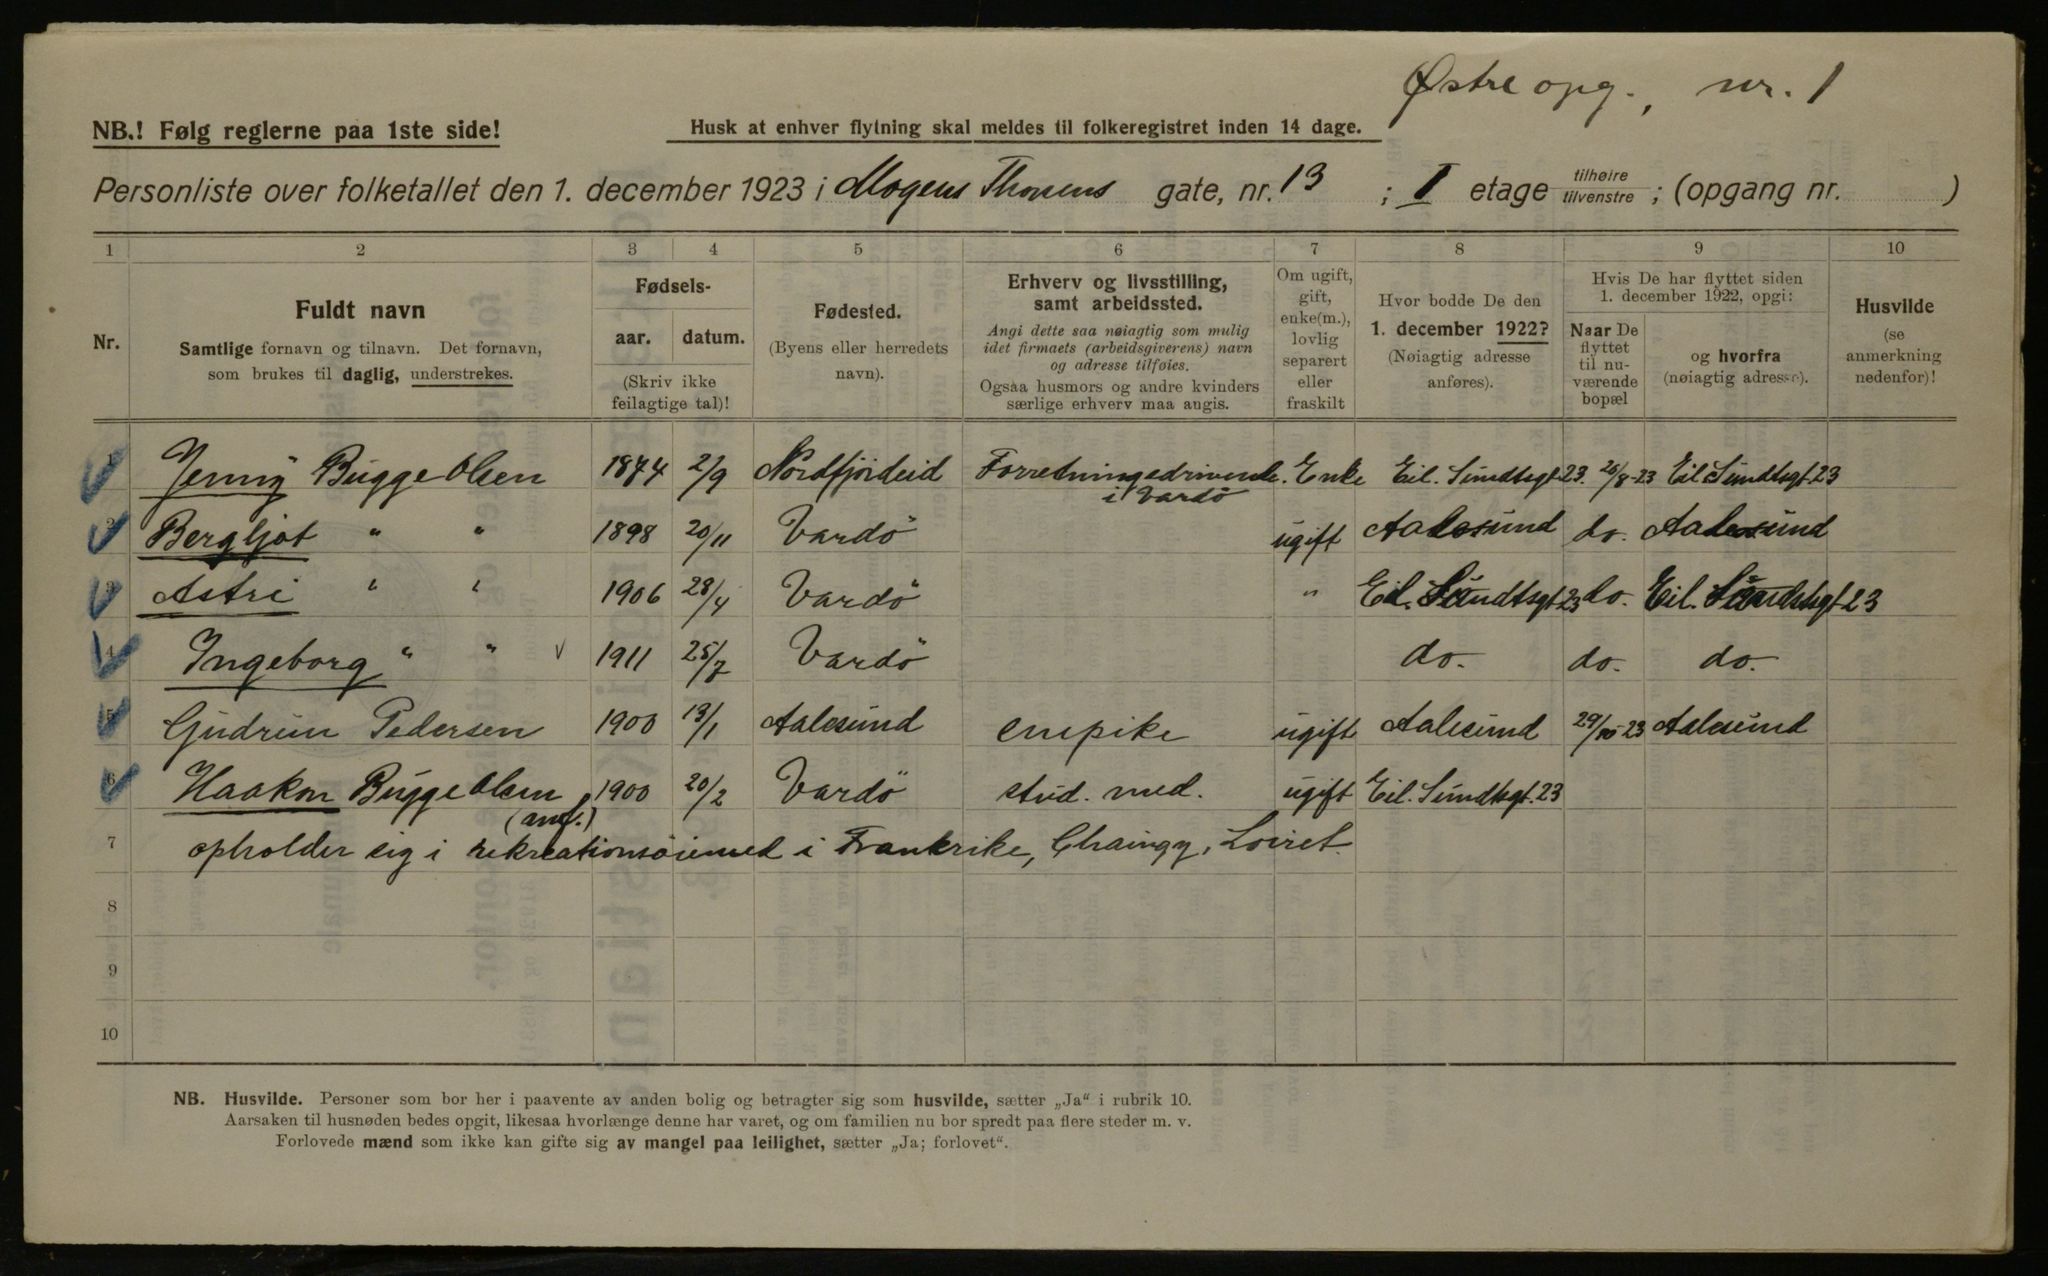 Østre opg., nr. 1
NB.! Følg reglerne paa 1ste side!
Husk at enhver flytning skal meldes til folkeregistret inden 14 dage.
Personliste over folketallet den 1. december 1923 i Mogens Thorsens gate, nr. 13 ; I etage tilhøire tilvenstre ; (opgang nr. )
1 2 3 4 5 6 7 8 9 10
Nr.
Fuldt navn
Samtlige fornavn og tilnavn. Det fornavn,
som brukes til daglig, understrekes.
Fødsels-
aar. datum.
(Skriv ikke
feilagtige tal)!
Fødested.
(Byens eller herredets
navn).
Erhverv og livsstilling,
samt arbeidssted.
Angi dette saa nøiagtig som mulig
idet firmaets (arbeidsgiverens) navn
og adresse tilføies.
Ogsaa husmors og andre kvinders
særlige erhverv maa angis.
Om ugift,
gift,
enke(m.),
lovlig
separert
eller
fraskilt
Hvor bodde De den
1. december 1922?
(Nøiagtig adresse
anføres).
Hvis De har flyttet siden
1. december 1922, opgi:
Naar De
flyttet
til nu-
værende
bopæl
og hvorfra
(nøiagtig adresse).
Husvilde
(se
anmerkning
nedenfor)!
1 Jenny Bugge Olsen 1874 2/9 Nordfjordeid Forretningsdrivende i Vardö Enke Eil. Sundtsgt 23. 26/8-23 Eil Sundtsgt 23
2 Bergljot " " 1898 20/11 Vardö ugift Aalesund do. Aalesund
3 Astri " " 1906 28/4 Vardö " Eil. Sundtsgt 23 do. Eil. Sundtsgt 23
4 Ingeborg " " 1911 25/7 Vardö do. do. do.
5 Gudrun Pedersen 1900 13/1 Aalesund enepike ugift Aalesund 29/10-23 Aalesund
6 Haakon Bugge Olsen 1900 20/2 Vardö stud. med. ugift Eil. Sundtsgt. 23
7 opholder sig i rekreationsöiemed i Frankrike, Chaingy, Loiret.
8
9
10
NB. Husvilde. Personer som bor her i paavente av anden bolig og betragter sig som husvilde, sætter „Ja“ i rubrik 10.
Aarsaken til husnøden bedes opgit, likesaa hvorlænge denne har varet, og om familien nu bor spredt paa flere steder m. v.
Forlovede mænd som ikke kan gifte sig av mangel paa leilighet, sætter „Ja; forlovet“.